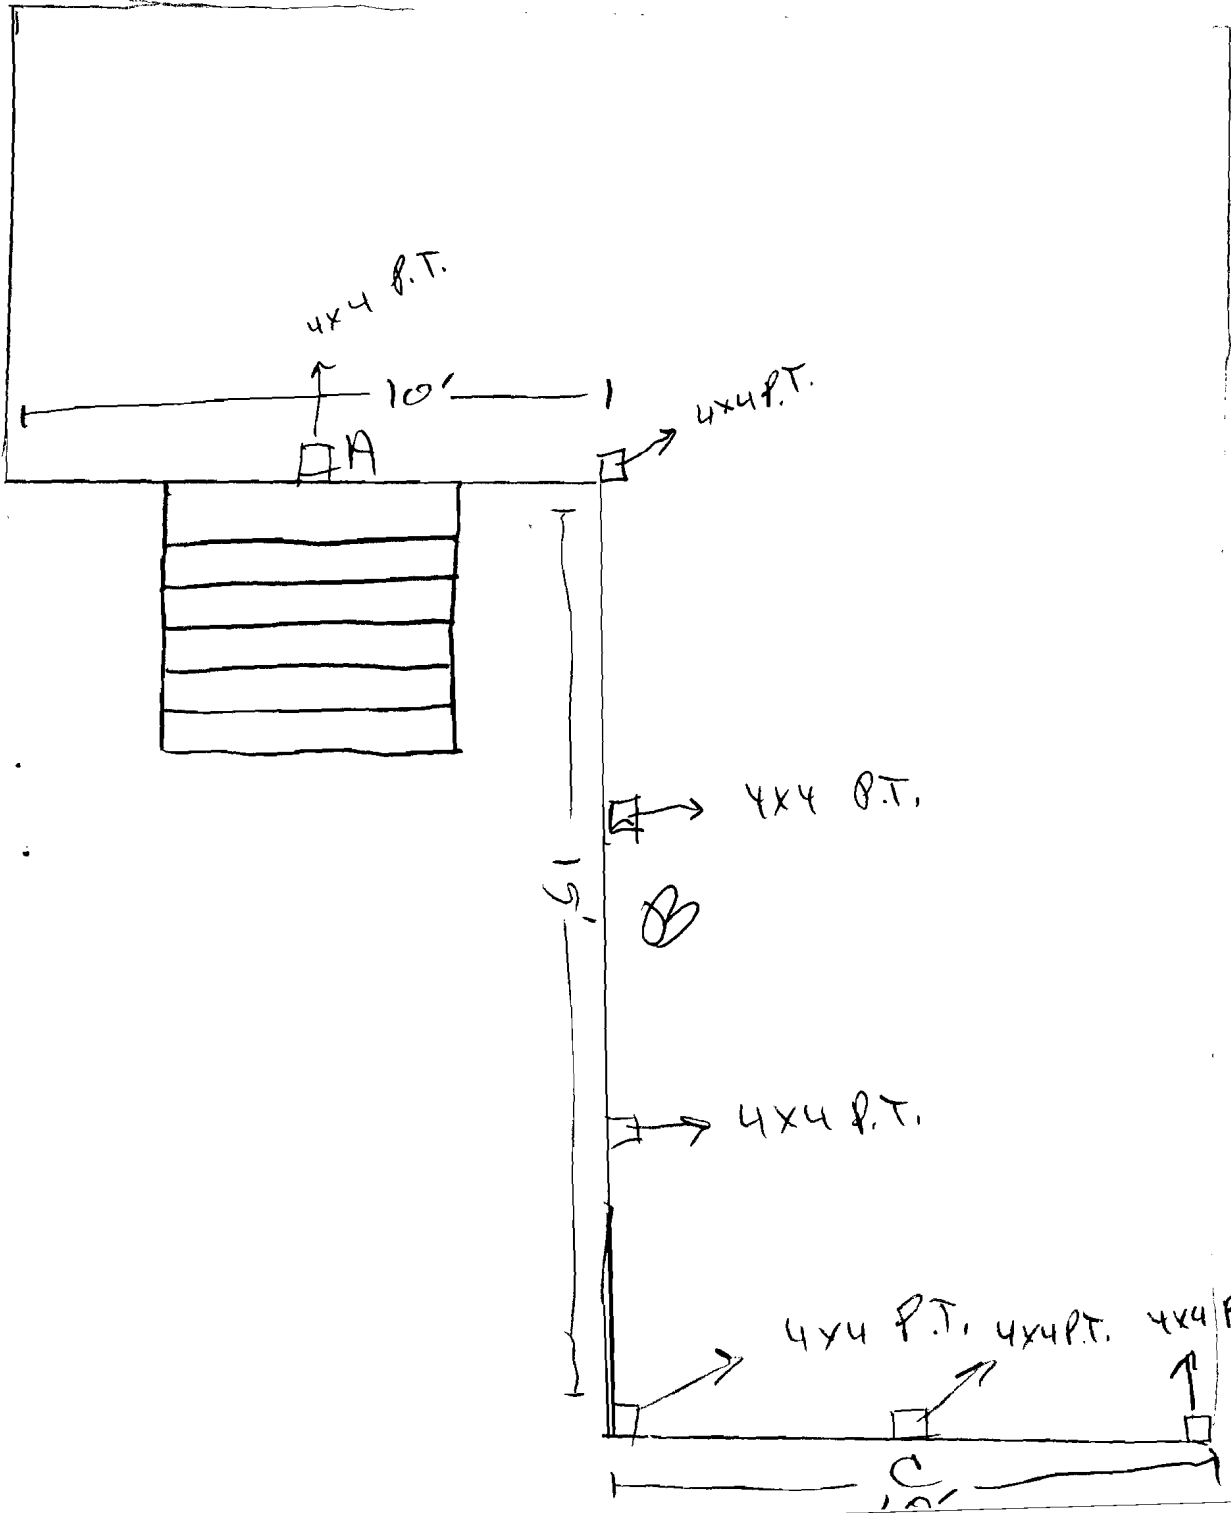 4x4 P.T.
10'
4x4 P.T.
A
4x4 P.T.
15'
B
4x4 P.T.
4x4 P.T. 4x4 P.T. 4x4 P
C
10'